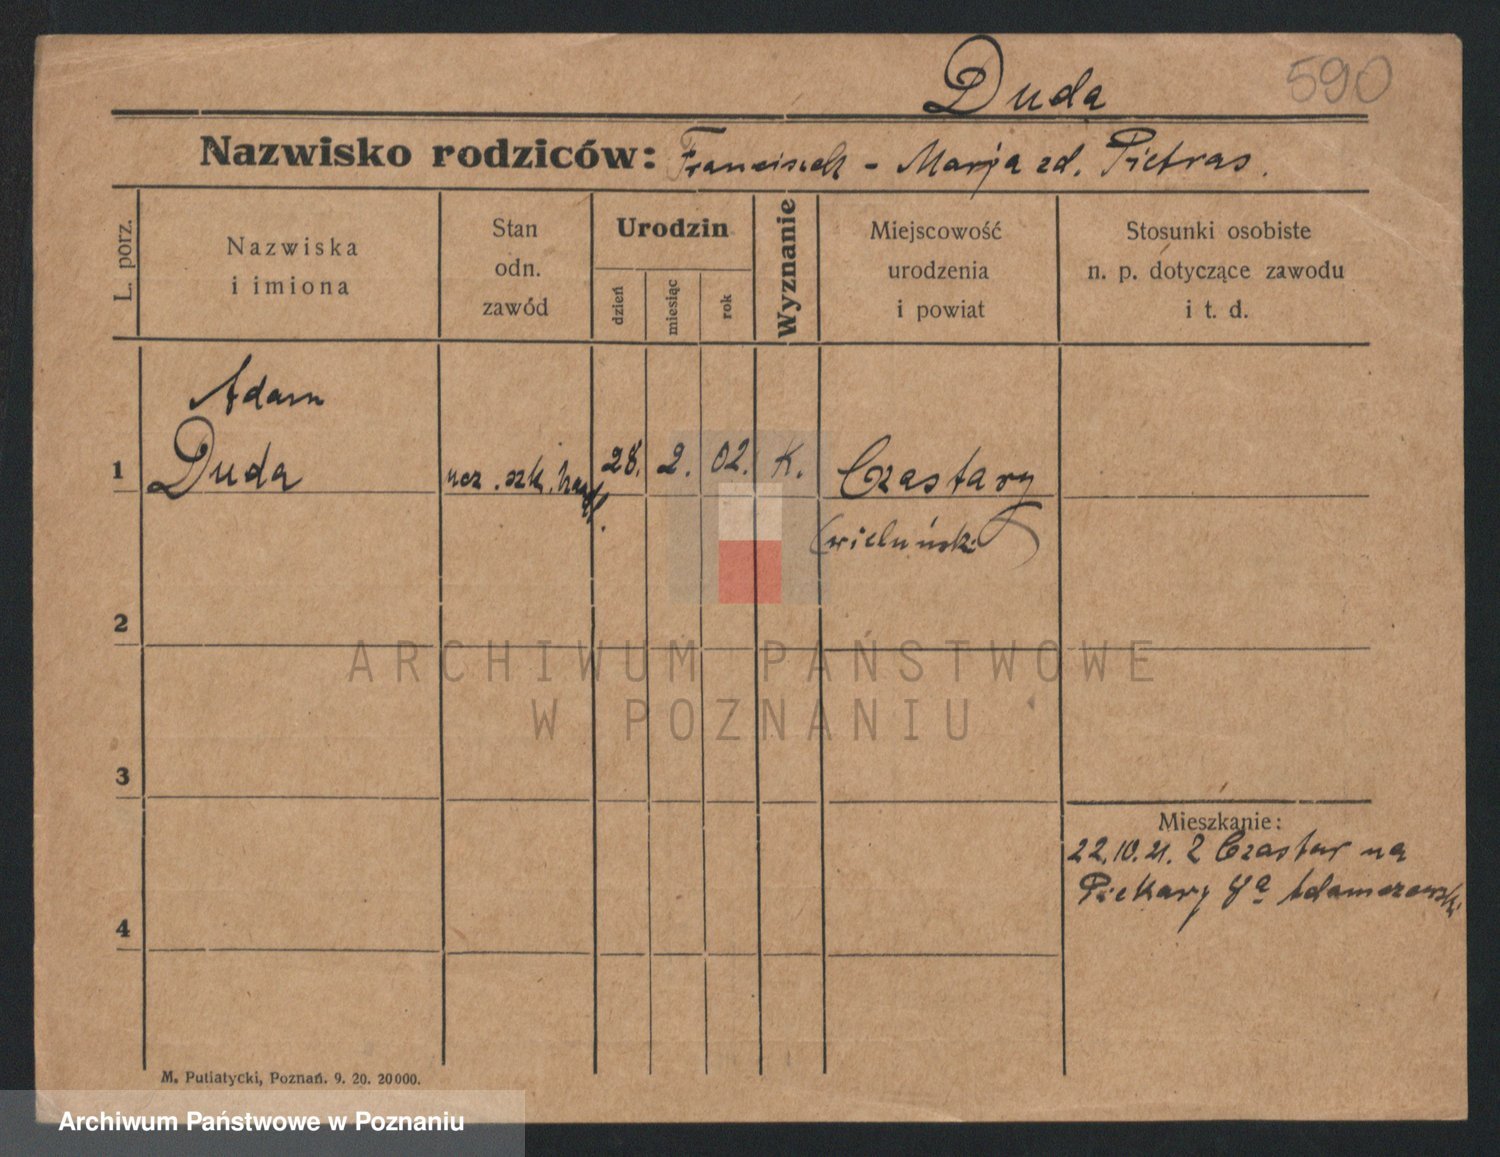 Duda 590
Nazwisko rodziców: Franciszek - Marja zd. Pietras.
L. porz.
Nazwiska
i imiona
Stan
odn.
zawód
Urodzin
dzień
miesiąc
rok
Wyznanie
Miejscowość
urodzenia
i powiat
Stosunki osobiste
n. p. dotyczące zawodu
i t. d.
Adam
1 Duda ucz. szk. handl. 28. 2. 02. K. Czastary
(wieluński)
2
ARCHIWUM PAŃSTWOWE
W POZNANIU
3
Mieszkanie:
22.10.21. z Czastar na
Piekary 8a Adamczewski
4
M. Putiatycki, Poznań. 9. 20. 20000.
Archiwum Państwowe w Poznaniu